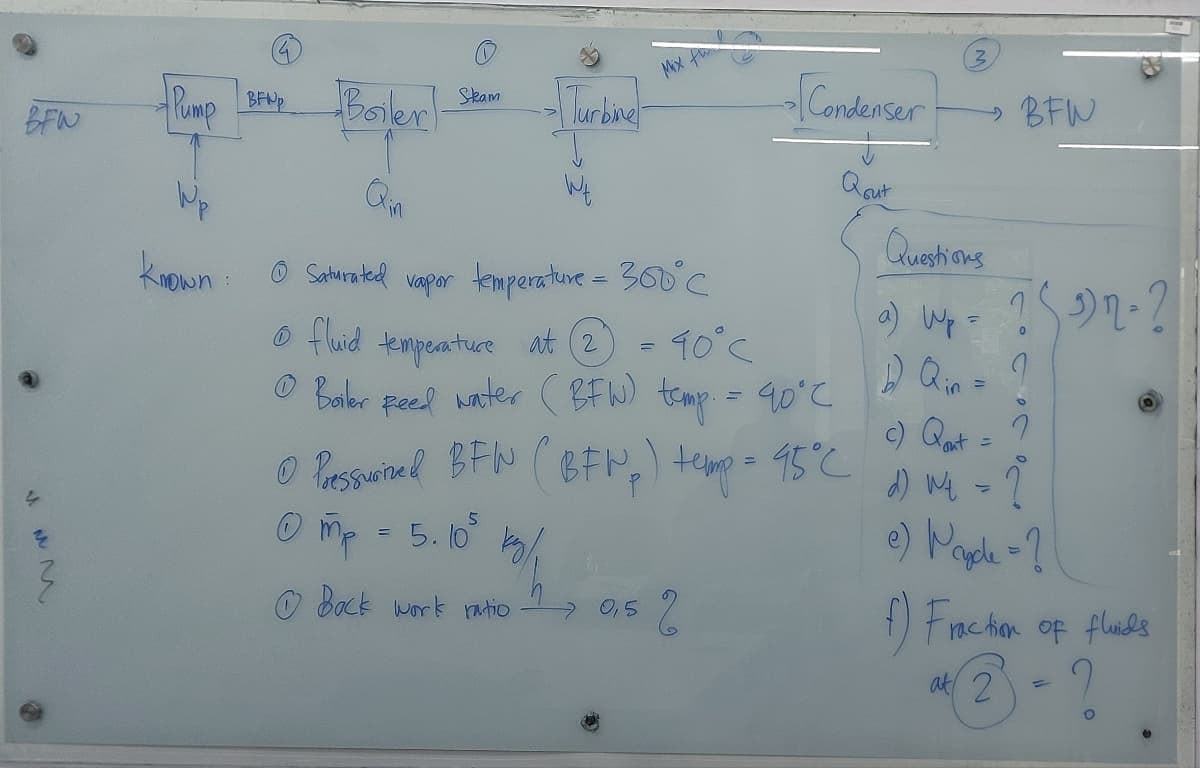 ④ ① Mix fluid ② ③
BFW Pump BFWp Boiler Steam Turbine Condenser BFW
Wp Qin Wt Qout
Known : ① Saturated vapor temperature = 300°C
① fluid temperature at ② = 40°C
① Boiler feed water (BFW) temp. = 40°C
① Pressurized BFW (BFWp) temp = 45°C
① ṁp = 5.10⁵ kg/h
① Back work ratio → 0,5 ?
Questions
a) Wp = ?
b) Qin = ?
c) Qout = ?
d) Wt = ?
e) Wcycle = ?
g) η = ?
f) Fraction of fluids
at ② = ?